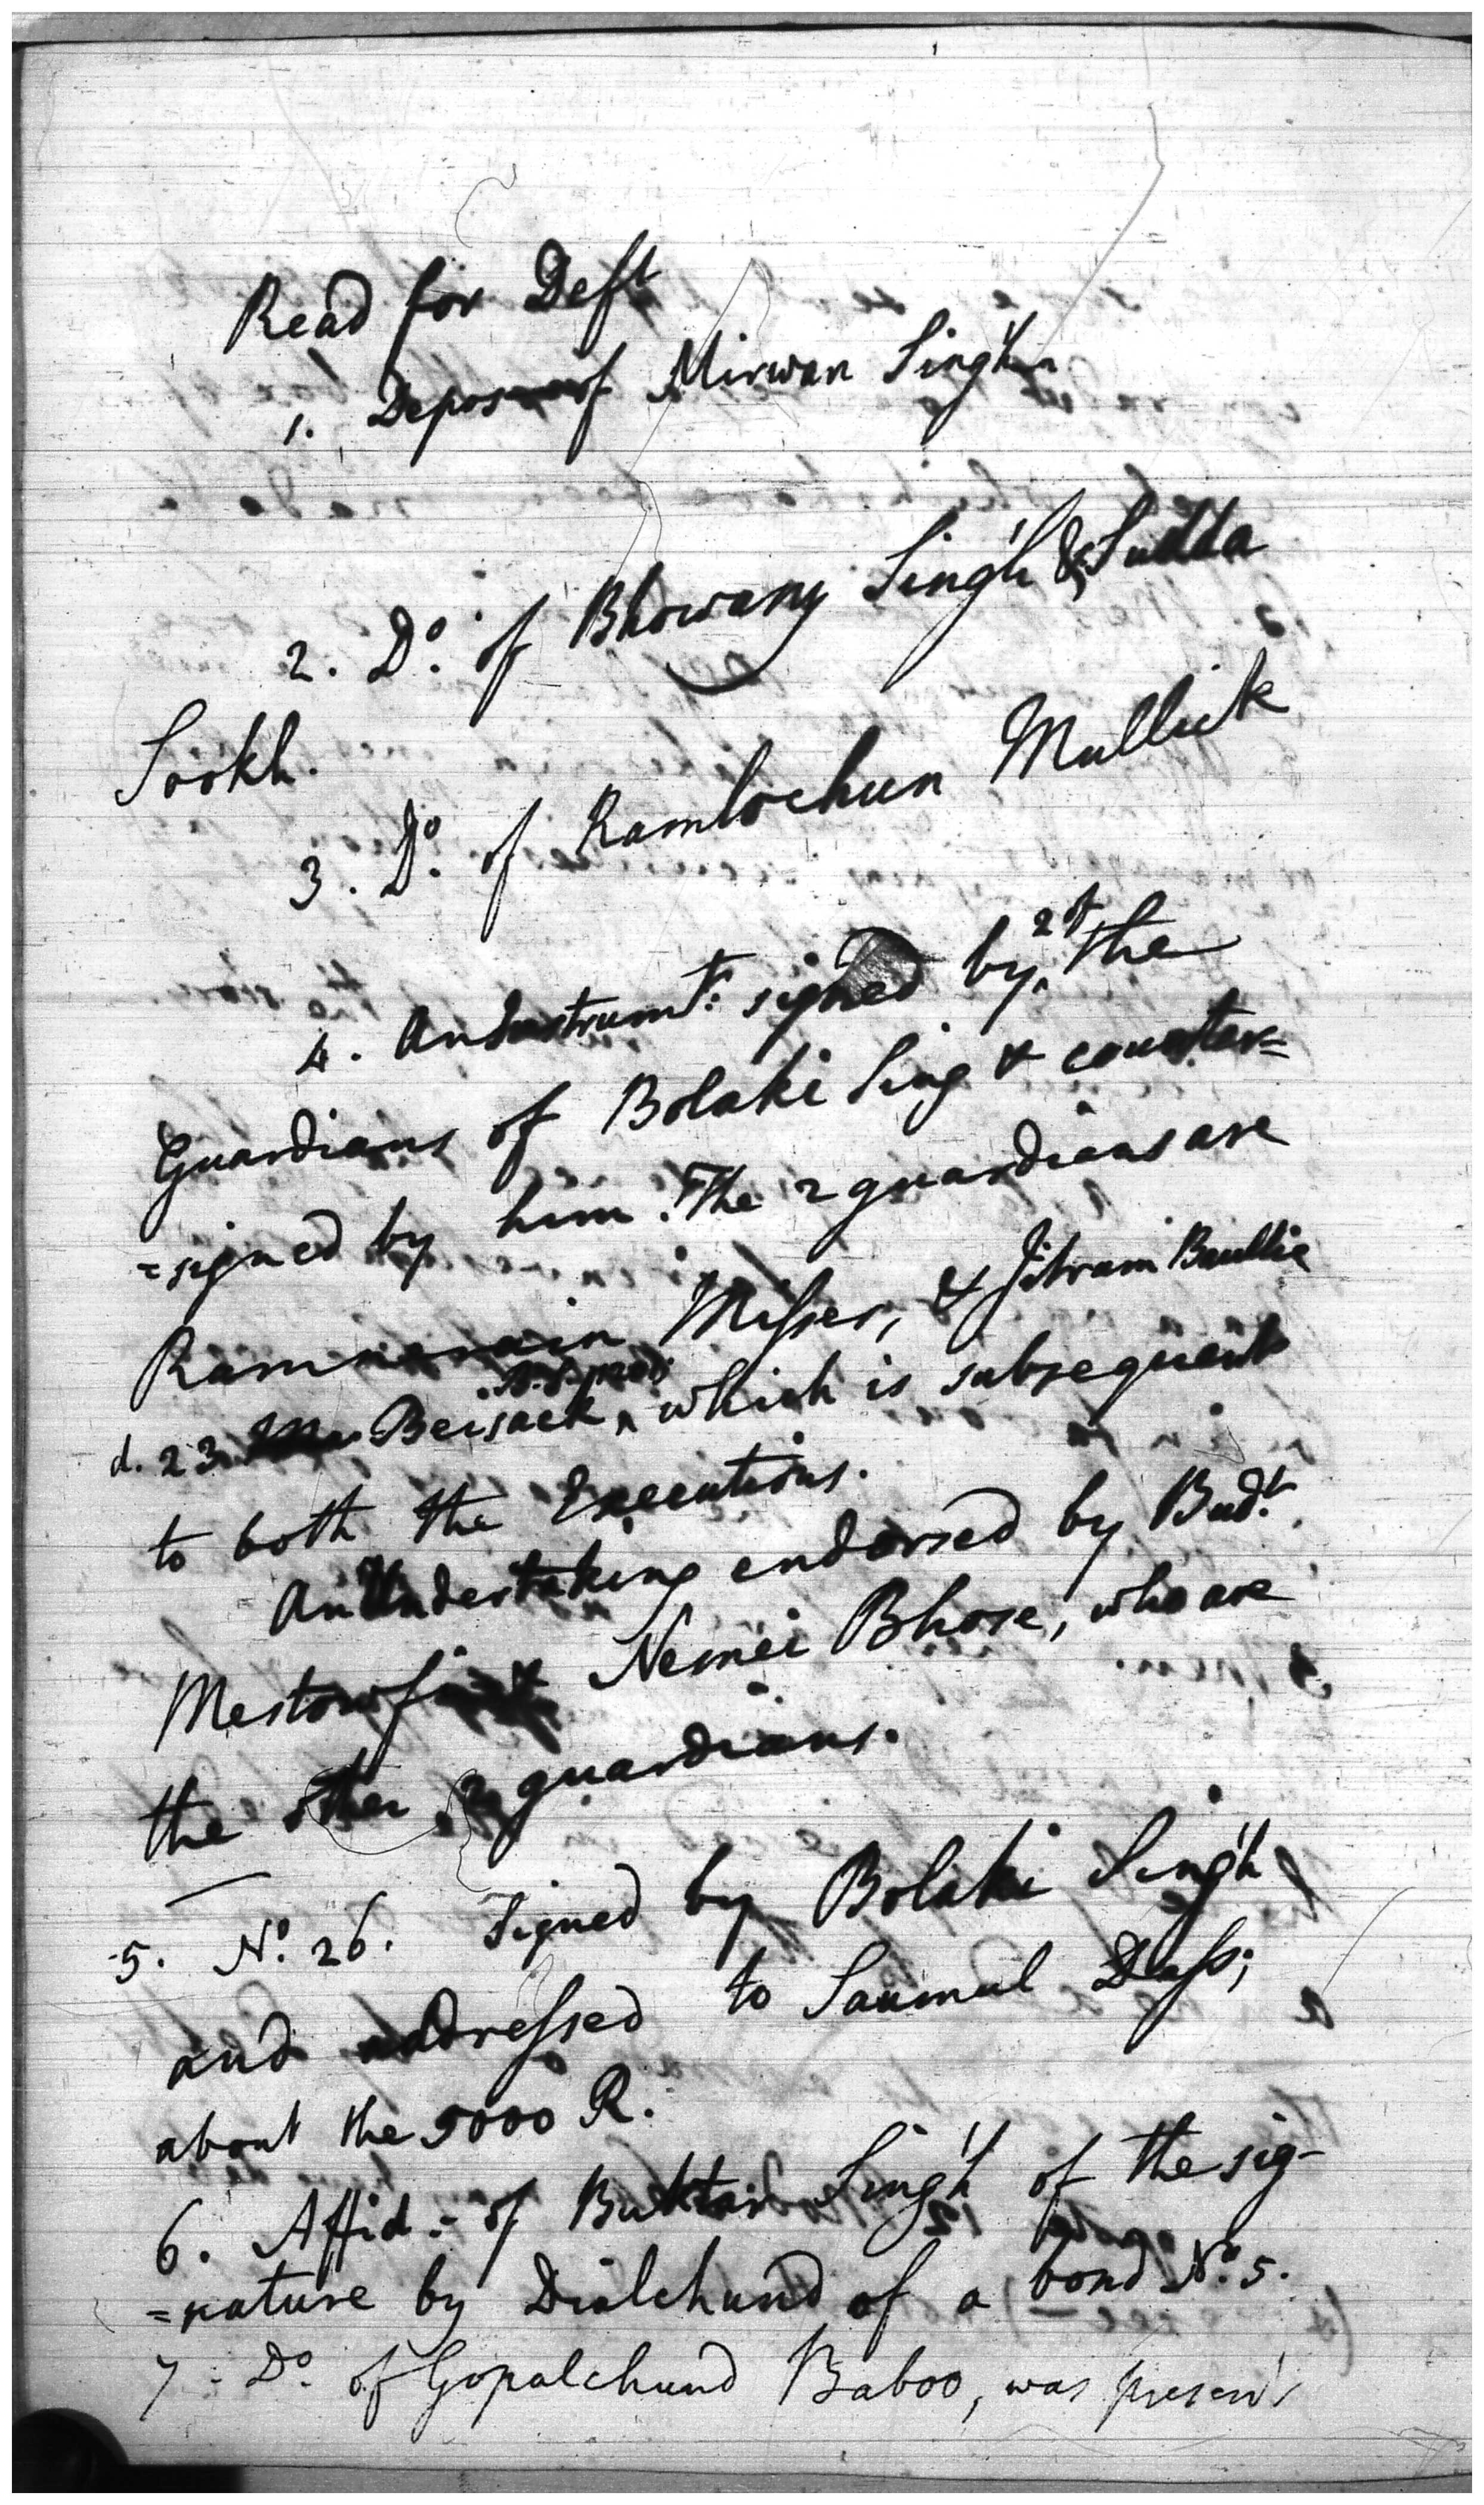 Read for Deft
1. Depos of Mirwan Singh
2. Do. of Bhowany Singh & Sudda
Sookh.
3. Do. of Ramlochun Mullick
4. An Instrumt. signed by 2 of the
Guardians of Bolaki Sing & counter=
=signed by him. The 2 guardians are
Ramnarain Misser, & Jitram
d. 23 Beisack, which is subsequent
to both the Executions.
An Undertaking endorsed by Budr.
Mestowfi & Nemei Bhose, who are
the other 2 guardians.
5. No. 26. Signed by Bolaki Singh
and addressed to Saumul Dass;
about the 5000 R.
6. Affid. of Buktar Singh of the sig-
=nature by Dialchund of a bond No. 5.
7. Do. of Gopalchund Baboo, was present